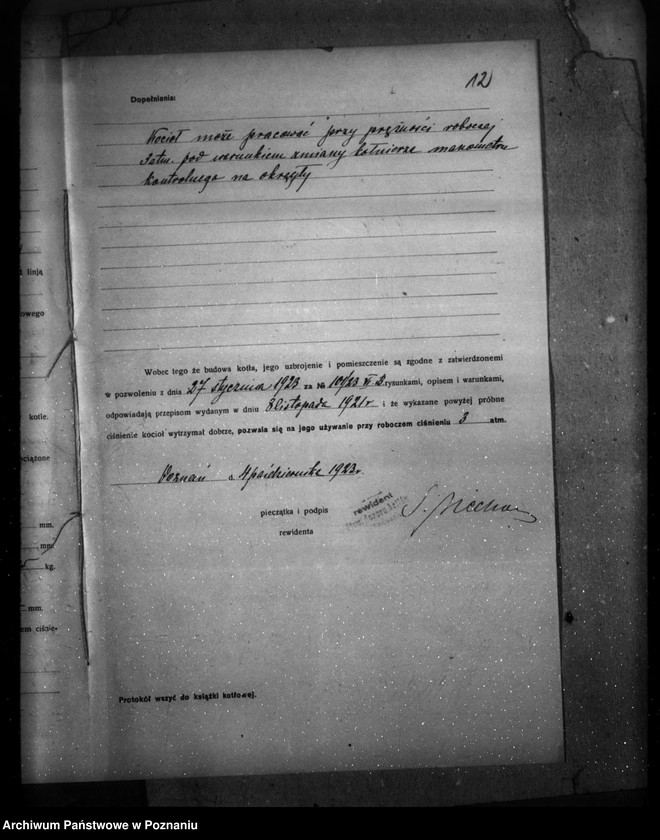 12
Dopełnienia:
Kocioł może pracować przy prężności roboczej
3 atm. pod warunkiem zmiany kołnierza manometru
kontrolnego na okrągły
linją
owego
kotle.
ciążone
mm.
mm.
kg.
mm.
em ciśnie-
Wobec tego że budowa kotła, jego uzbrojenie i pomieszczenie są zgodne z zatwierdzonemi
w pozwoleniu z dnia 27 stycznia 1923 za № rysunkami, opisem i warunkami,
odpowiadają przepisom wydanym w dniu 8 listopada 1921 r i że wykazane powyżej próbne
ciśnienie kocioł wytrzymał dobrze, pozwala się na jego używanie przy roboczem ciśnieniu 3 atm.
Poznań d. 4 października 1923 r.
pieczątka i podpis
rewidenta
rewident
Protokół wszyć do książki kotłowej.
Archiwum Państwowe w Poznaniu